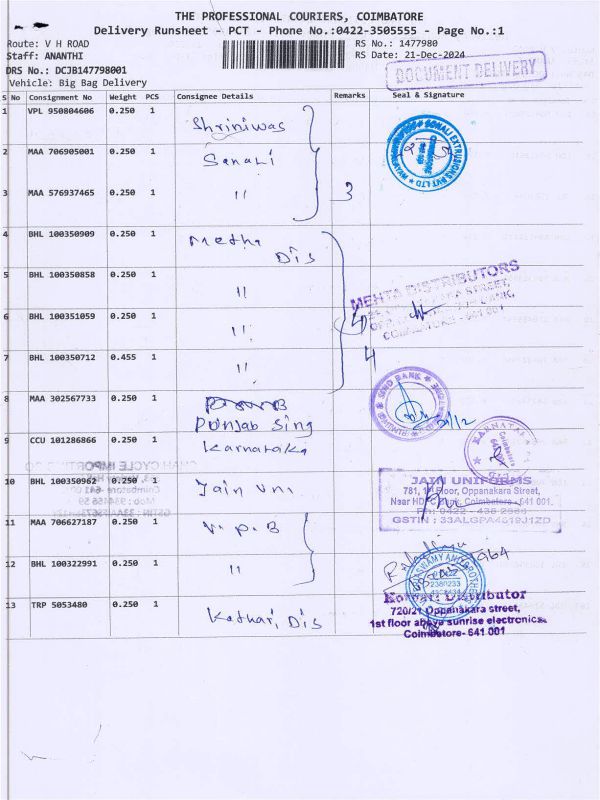 THE PROFESSIONAL COURIERS, COIMBATORE
Delivery Runsheet - PCT - Phone No.:0422-3505555 - Page No.:1
Route: V H ROAD RS No.: 1477980
Staff: ANANTHI RS Date: 21-Dec-2024
DRS No.: DCJB147798001
Vehicle: Big Bag Delivery
DOCUMENT DELIVERY
S No Consignment No Weight PCS Consignee Details Remarks Seal & Signature
1 VPL 950804606 0.250 1 Shriniwas
2 MAA 706905001 0.250 1 Sanali
3 MAA 576937465 0.250 1 11 3
SONALI EXTRUSIONS PVT LTD
4 BHL 100350909 0.250 1 Metha
Dis
5 BHL 100350858 0.250 1 11
MEHTA DISTRIBUTORS
STREET,
BANK,
COIMBATORE - 641 001
6 BHL 100351059 0.250 1 11
7 BHL 100350712 0.455 1 11 4
8 MAA 302567733 0.250 1
Punjab Sing
SIND BANK
21/12
9 CCU 101286866 0.250 1 Karnataka
KARNATAKA
Coimbatore
10 BHL 100350962 0.250 1 Jain Uni
JAIN UNIFORMS
781, 1st Floor, Oppanakara Street,
Coimbatore - 641 001.
GSTIN : 33ALGPA4619J1ZD
11 MAA 706627187 0.250 1 V. P. B
12 BHL 100322991 0.250 1 11
13 TRP 5053480 0.250 1 Kathari, Dis
Distributor
720/21 Oppanakara street,
1st floor above sunrise electronics,
Coimbatore- 641 001